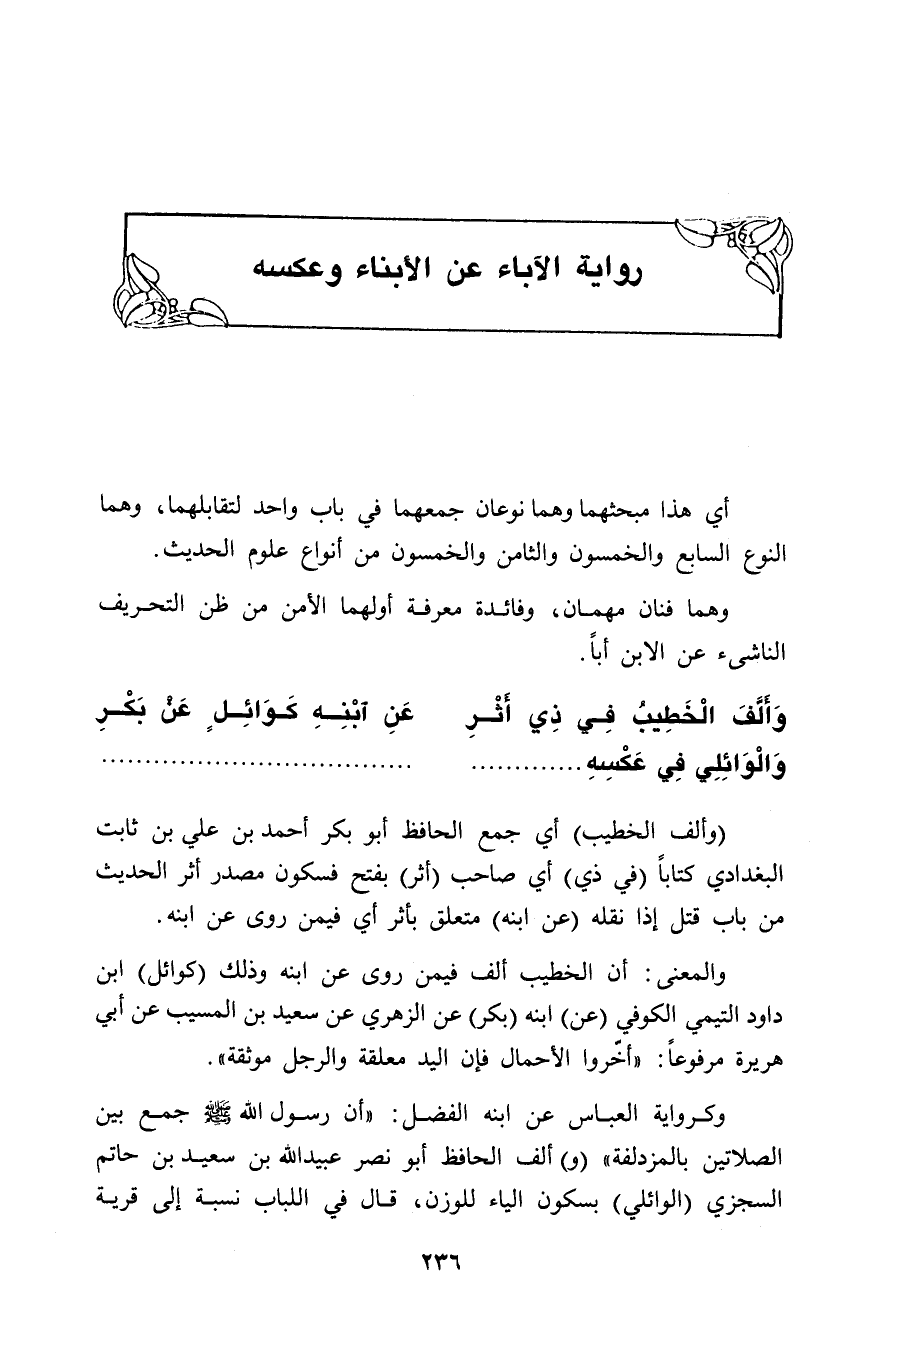 رواية الآباء عن الأبناء وعكسه
أي هذا مبحثهما وهما نوعان جمعهما في باب واحد لتقابلهما، وهما
النوع السابع والخمسون والثامن والخمسون من أنواع علوم الحديث.
وهما فنان مهمان، وفائدة معرفة أولهما الأمن من ظن التحريف
الناشىء عن الابن أباً.
وَأَلَّفَ الْخَطِيبُ فِي ذِي أَثْرِ عَنِ آبْنِهِ كَوَائِلٍ عَنْ بَكْرِ
وَالْوَائِلِي فِي عَكْسِهِ ............. ..................................
(وألف الخطيب) أي جمع الحافظ أبو بكر أحمد بن علي بن ثابت
البغدادي كتاباً (في ذي) أي صاحب (أثر) بفتح فسكون مصدر أثر الحديث
من باب قتل إذا نقله (عن ابنه) متعلق بأثر أي فيمن روى عن ابنه.
والمعنى: أن الخطيب ألف فيمن روى عن ابنه وذلك (كوائل) ابن
داود التيمي الكوفي (عن) ابنه (بكر) عن الزهري عن سعيد بن المسيب عن أبي
هريرة مرفوعاً: «أخِّروا الأحمال فإن اليد معلقة والرجل موثقة».
وكرواية العباس عن ابنه الفضل: «أن رسول الله ﷺ جمع بين
الصلاتين بالمزدلفة» (و) ألف الحافظ أبو نصر عبيدالله بن سعيد بن حاتم
السجزي (الوائلي) بسكون الياء للوزن، قال في اللباب نسبة إلى قرية
٢٣٦